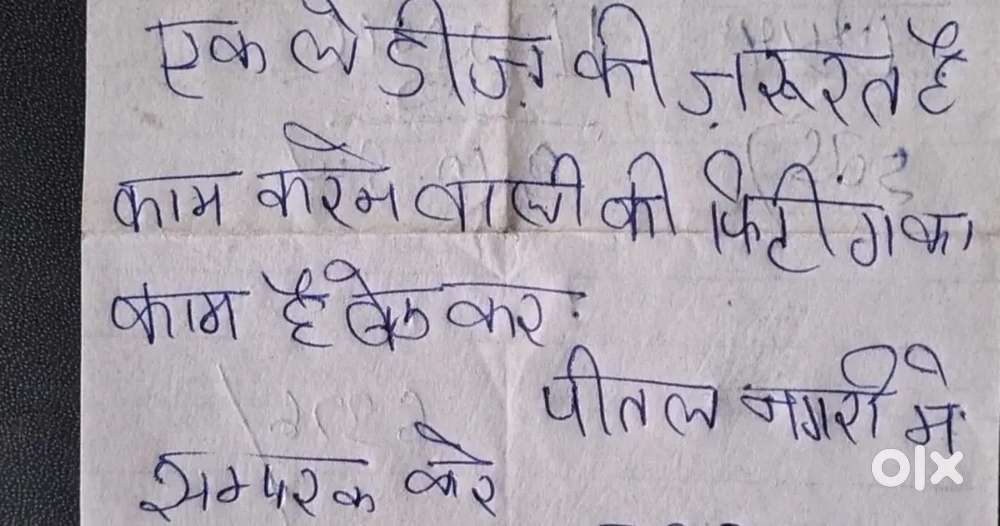 एक लेडीज़ की ज़रूरत है
काम करेन वाली की फिटींग का
काम है बैठ कर
पीतल नगरी में
सम्परक करे
OLX